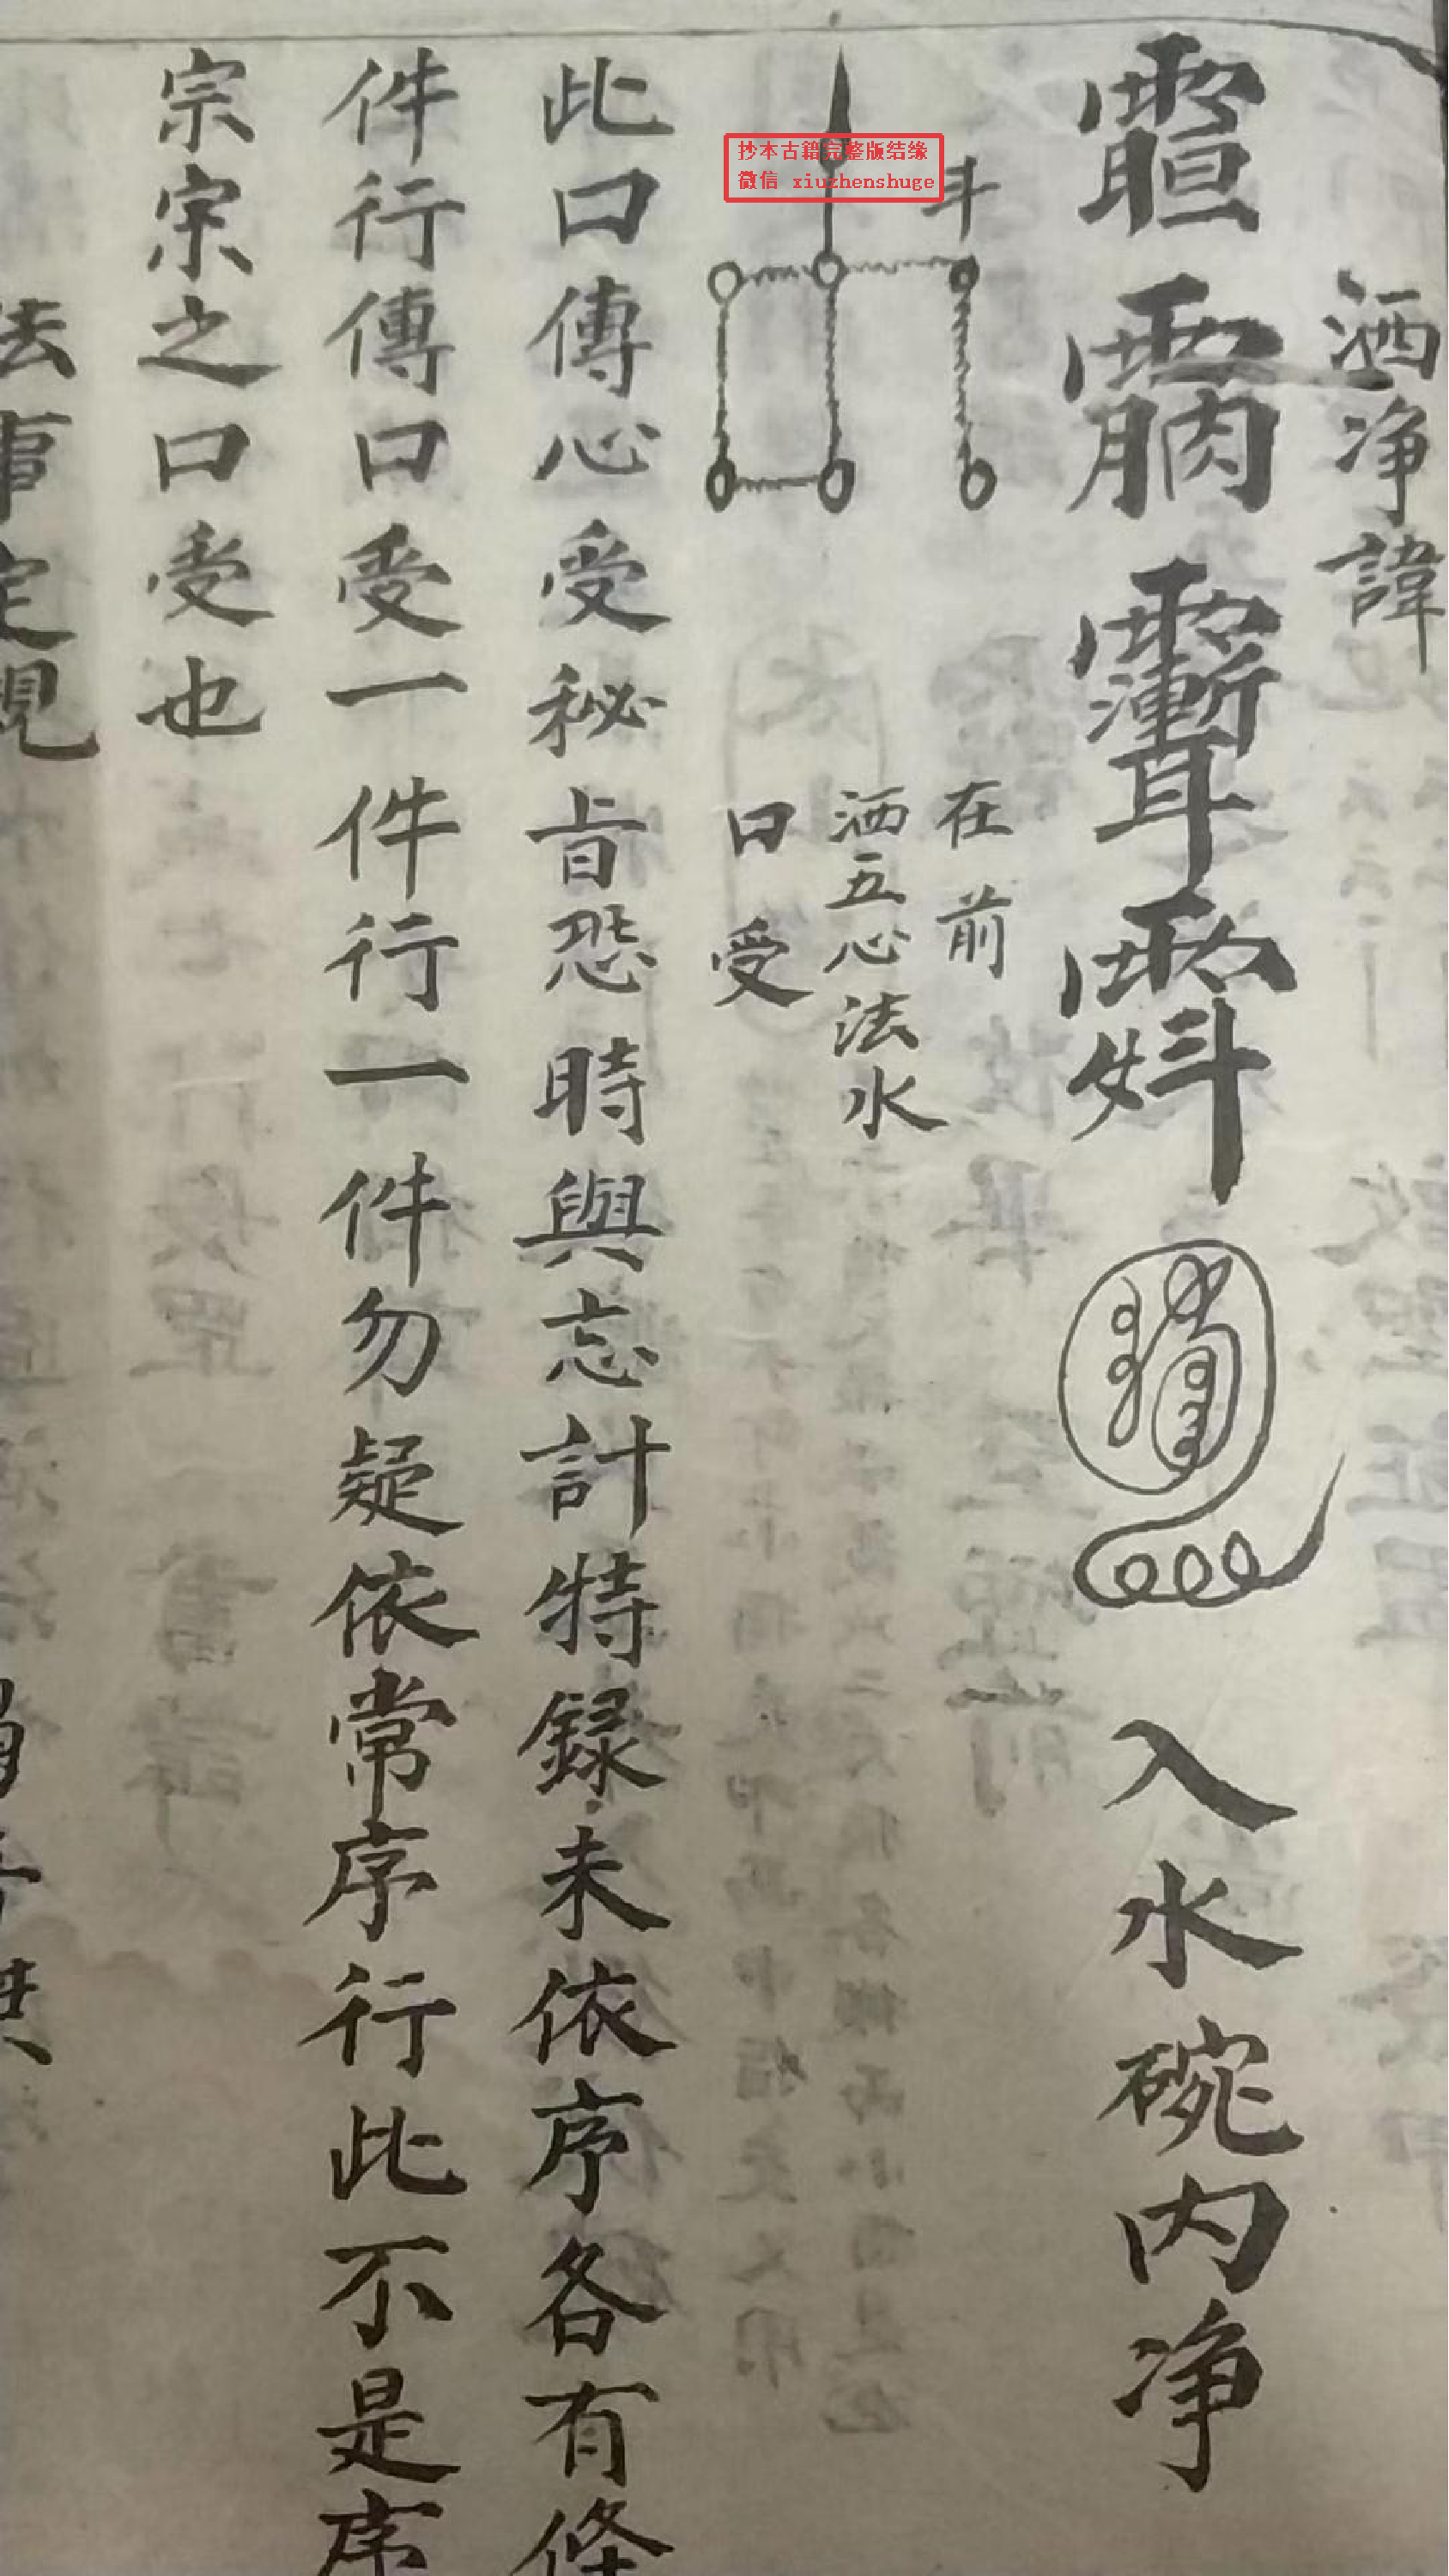 洒净諱
入水碗内净
斗
在前
洒五心法水
口受
此口傳心受秘旨恐時與忘計特録未依序各有條
件行傳口受一件行一件勿疑依常序行此不是序
宗宗之口受也
法事定規
抄本古籍完整版结缘
微信 xiuzhenshuge